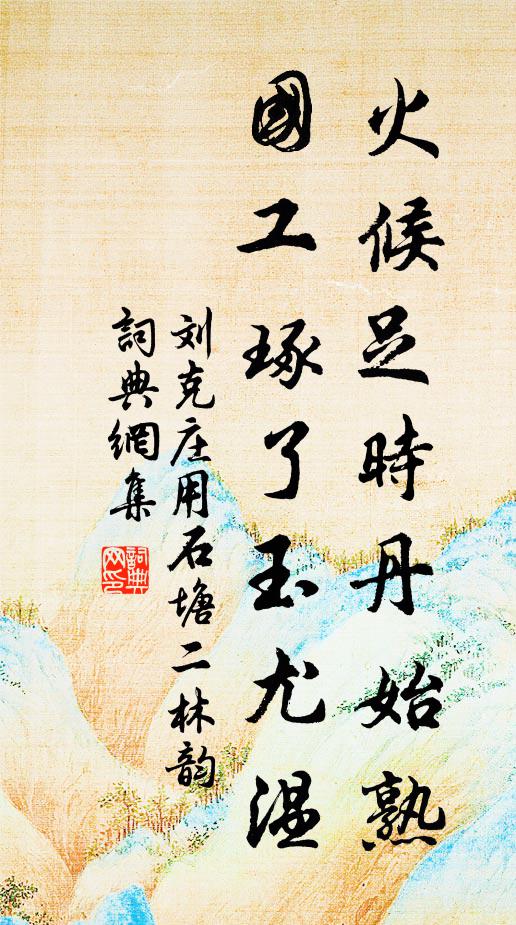 火候足時丹始熟
國工琢了玉尤温
刘克庄用石塘二林韵
詞典網集
詞典網印